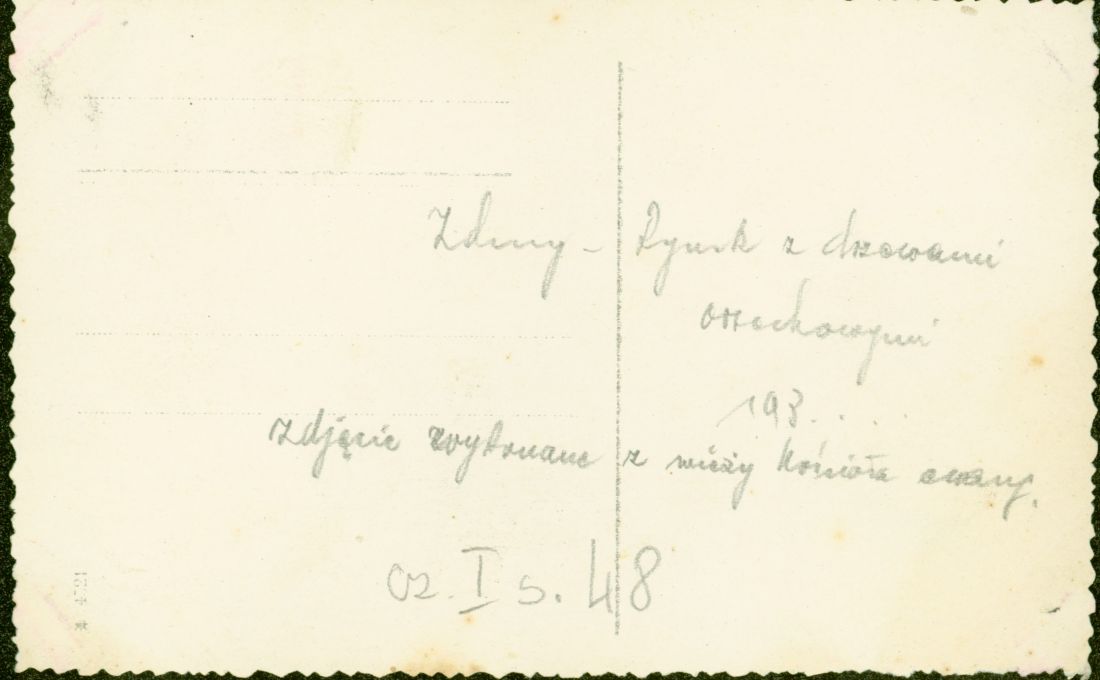 Zduny - Rynek z drzewami
orzechowymi
193...
zdjęcie wykonane z wieży Kościoła ewang.
cz. I s. 48